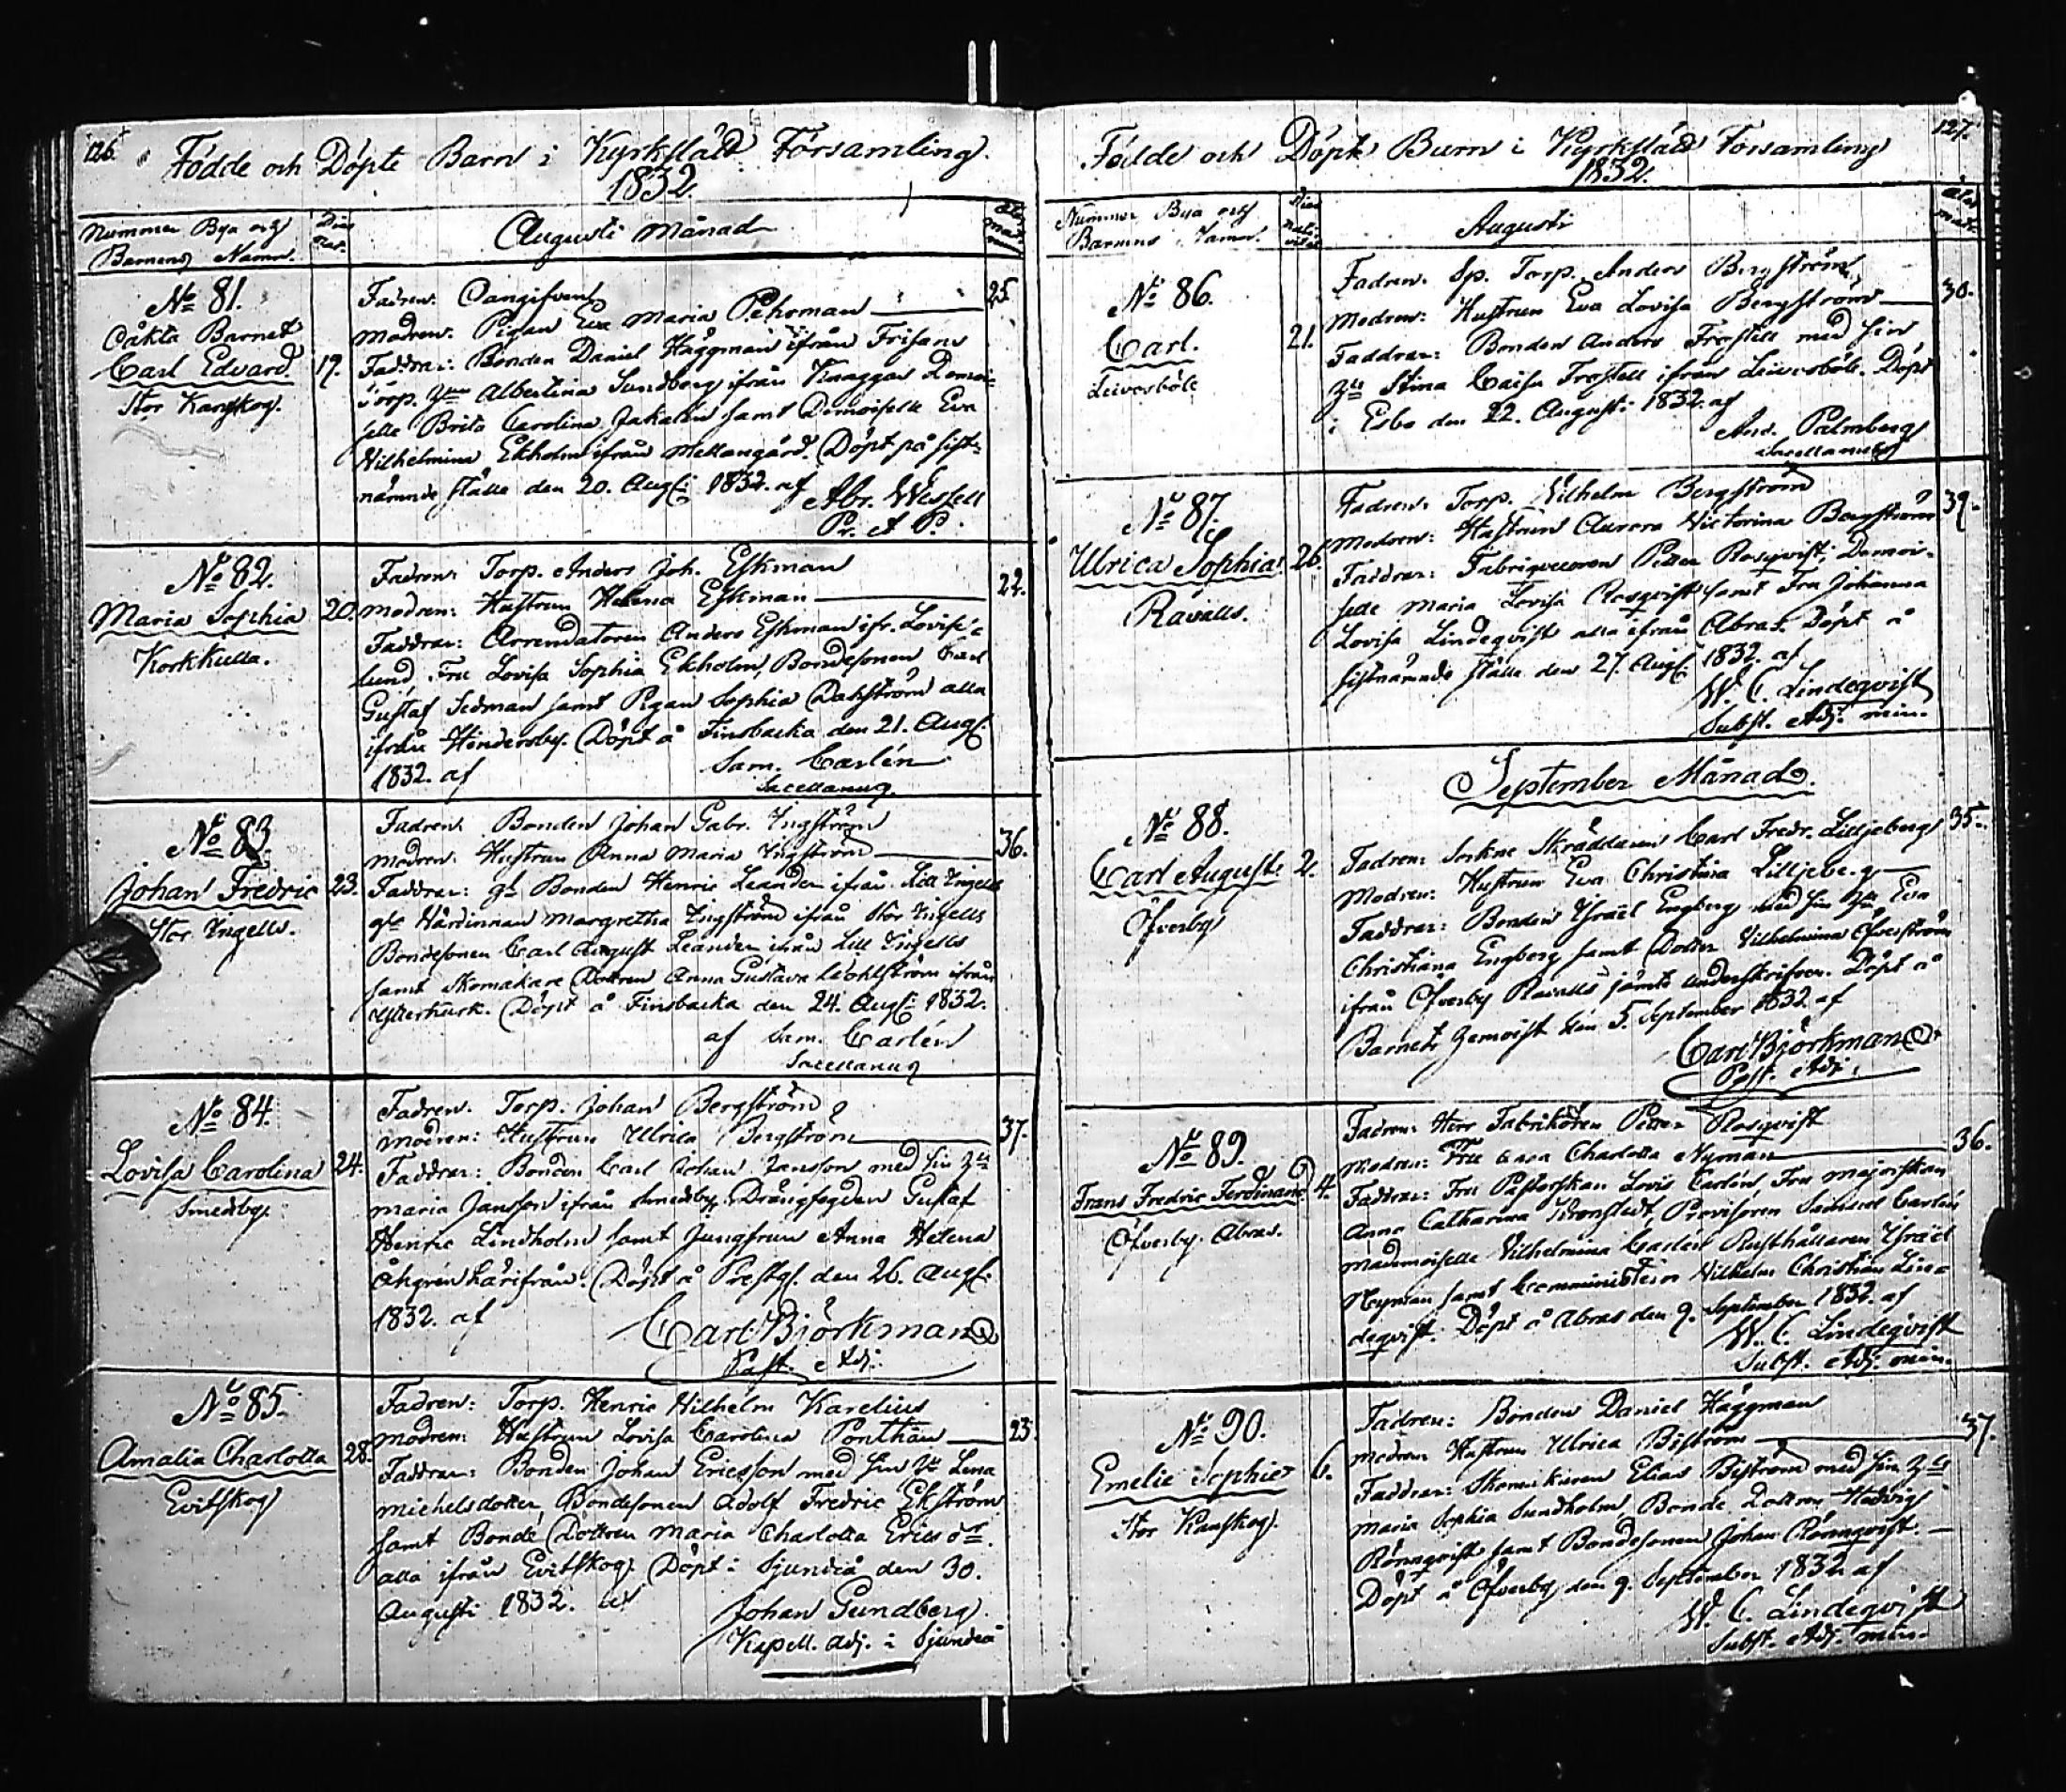 126.
Födde och Döpte Barn i Kyrkslätt Församling.
1832.
Nummer Bya och
Barnens Namn.
Dies
nat.
Augusti Månad
No 81.
Oäkta Barnet
Carl Edvard.
Stor Kanskog.
19.
Fadren: Oangifven
Modren: Pigan Eva Maria Pehrman
25.
Faddrar: Bonden Daniel Häggman ifrån Frisans
Torp. Albertina Sundberg ifrån Knaggas Demoi-
selle Brita Carolina samt Demoiselle Eva
Wilhelmina Ekholm ifrån Mellangård. Döpt på sist-
nämnde ställe den 20. Aug: 1832. af
Abr. Wessell
Pr. A P.
No 82.
Maria Sophia
Korkkulla.
20.
Fadren: Torp. Anders Joh. Eskman
Modren: Hustrun Helena Eskman
22.
Faddrar: Arrendatoren Anders Eskman ifr. Lovise-
lund Fru Lovisa Sophia Ekholm, Bondesonen Carl
Gustaf Sedman samt Pigan Sophia Dahlström alla
ifrån Hindersby. Döpt å Finsbacka den 21. Aug:
1832. af
Sam. Carlén
Sacellanus.
No 83.
Johan Fredric
Stor Ingells.
23.
Fadren: Bonden Johan Gabr. Ingström
Modren: Hustrun Anna Maria Ingström
36.
Faddrar: gl. Bonden Henric Leander ifrån Lill Ingells
gl. Värdinnan Margretha Ingström ifrån Stor Ingells
Bondesonen Carl August Leander ifrån Lill Ingells
samt Skomakare Dottren Anna Gustava Wohlström ifrån
Döpt å Finsbacka den 24. Aug: 1832.
af Sam. Carlén
Sacellanus
No 84.
Lovisa Carolina
Smedsby.
24.
Fadren: Torp. Johan Bergström
Modren: Hustrun Ulrica Bergström
37.
Faddrar: Bonden Carl Johan Jansson med sin
Maria Jansson ifrån Smedsby, Drängfogden Gustaf
Henric Lindholm samt Jungfrun Anna Helena
Åhgren härifrån. Döpt å Prestg. den 26. Aug:
1832. af
Carl Björkman
Past. Adj.
No 85.
Amalia Charlotta
Evitskog
28.
Fadren: Torp. Henric Wilhelm Karelius
Modren: Hustrun Lovisa Carolina Ponthan
23.
Faddrar: Bonden Johan Ericsson med sin Lena
Michelsdotter, Bondesonen Adolf Fredric Ekström
samt Bonde Dottren Maria Charlotta
alla ifrån Evitskog. Döpt i Sjundeå den 30.
Augusti 1832. af
Johan Sundberg.
Kapell. adj. i Sjundeå
127.
Födde och Döpte Barn i Kyrkslätt Församling
1832.
Nummer Bya och
Barnens Namn.
Dies
nati-
vitat.
Augusti
No 86.
Carl.
Leivosböle
21.
Fadren: Sp. Torp. Anders Bergström
Modren: Hustrun Eva Lovisa Bergström
30.
Faddrar: Bonden Anders Frostell med sin
Stina Caisa Frostell ifrån Leivosböle. Döpt
i Esbo den 22. Augusti 1832. af
And. Palmberg
Sacellanus
No 87.
Ulrica Sophia.
Ravalls.
26.
Fadren: Torp. Wilhelm Bergström
Modren: Hustrun Aurora Victorina Bergström
39.
Faddrar: Fabriqueuren Petter Rosqvist, Demoi-
selle Maria Lovisa Rosqvist samt Fru Johanna
Lovisa Lindeqvist alla ifrån Abras. Döpt å
sistnämnde ställe den 27. Aug: 1832. af
W. C. Lindeqvist
Subst. Adj. min.
September Månad.
No 88.
Carl August.
Öfverby
2.
Fadren: Sockne Skräddaren Carl Fredr. Lilljeberg
35.
Modren: Hustrun Eva Christina Lilljeberg
Faddrar: Bonden Ysraël Engberg med sin Eva
Christiana Engberg samt Dotter Wilhelmina Öfverström
ifrån Öfverby Ravalls jämte underskrifven. Döpt i
Barnets hemvist den 5. September 1832. af
Carl Björkman
Past. Adj.
No 89.
Frans Fredric Ferdinand
Öfverby. Abras.
4.
Fadren: Herr Fabrikören Petter Rosqvist
Modren: Fru Charlotta Nyman
36.
Faddrar: Fru Pastorskan Lovis Carlén, Fru Majorskan
Anna Catharina, Provisoren Samuel Carlén
Mademoiselle Wilhelmina Carlén Rusthållaren Ysraël
Nyman samt Comministern Wilhelm Christian Lin-
deqvist. Döpt å Abras den 9. September 1832. af
W. C. Lindeqvist
Subst. Adj. min.
No 90.
Emelie Sophie
Stor Kanskog.
6.
Fadren: Bonden Daniel Häggman
Modren: Hustrun Ulrica Biström
37.
Faddrar: Skomakaren Elias Biström med sin
Maria Sophia Sundholm, Bonde Dottren Hedvig
Rönnqvist samt Bondesonen Johan Rönnqvist.
Döpt å Öfverby den 9. September 1832 af
W. C. Lindeqvist
Subst. Adj. min.